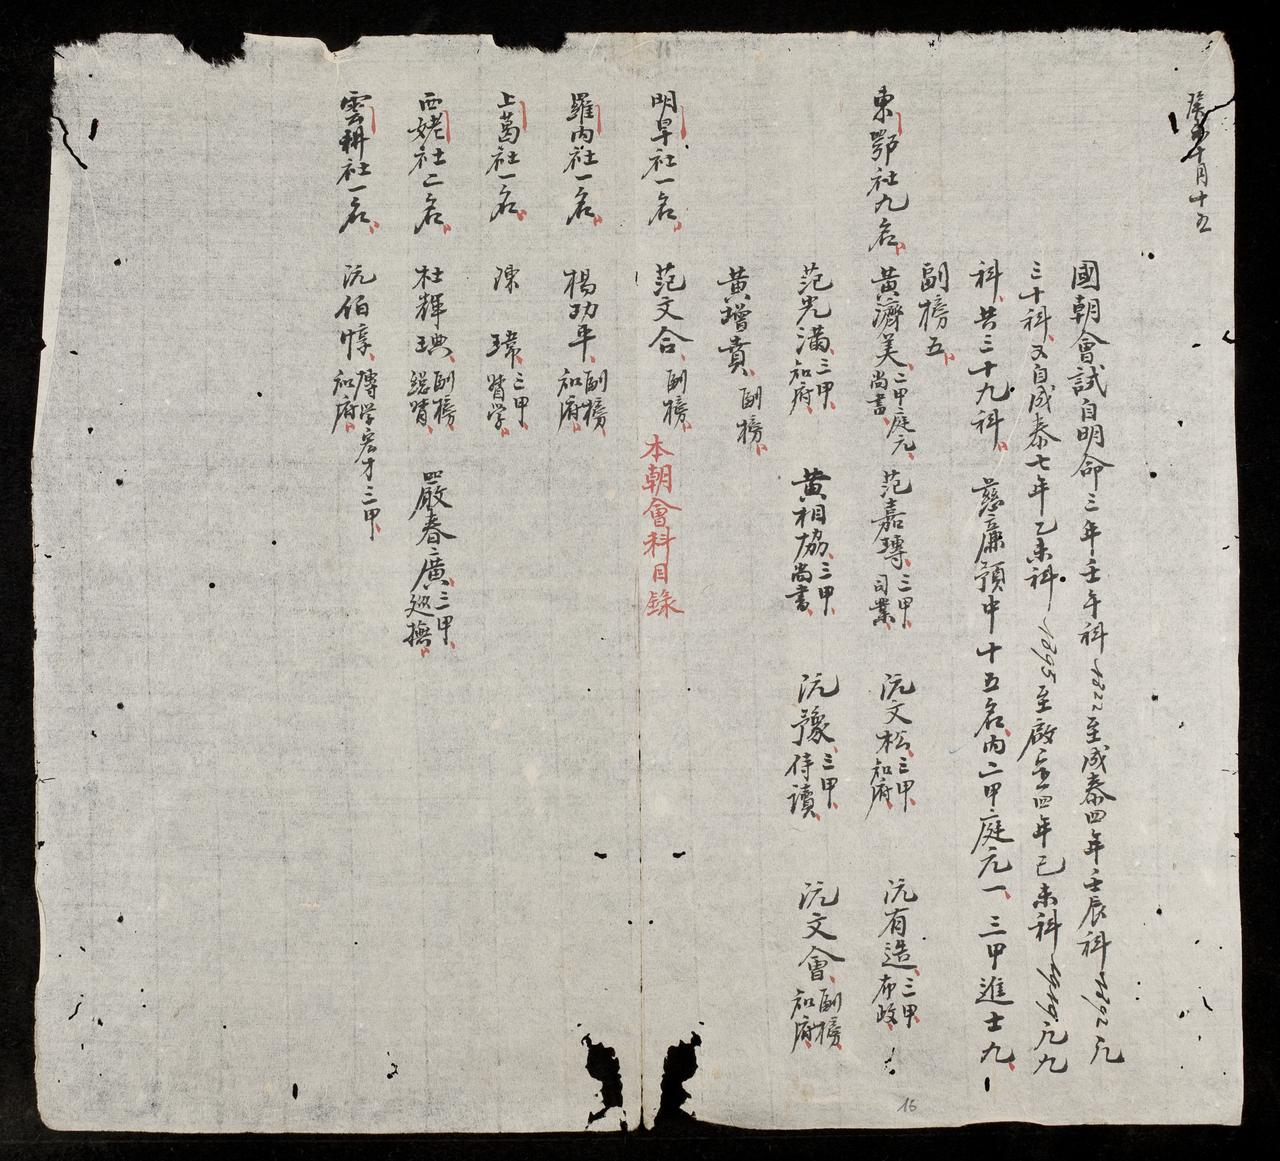 癸酉十月十五
國朝會試自明命三年壬午科1822至成泰四年壬辰科1892凡
三十科、又自成泰七年乙未科1895至啟定四年己未科1919凡九
科、共三十九科、慈廉預中十五名、內二甲庭元一、三甲進士九、
副榜五、
東鄂社九名、 黃濟美、二甲庭元、尚書、 范嘉㻮、三甲、司業、 阮文松、三甲、知府、 阮有造、三甲、布政、
范光滿、三甲、知府、 黃相協、三甲、尚書、 阮豫、三甲、侍讀、 阮文會、副榜、知府、
黃增賁、副榜、
明旱社一名、 范文合、副榜、
本朝會科目錄
羅內社一名、 楊功平、副榜、知府、
上葛社一名、 陳瑋、三甲、督學、
西姥社二名、 杜輝琠、副榜、總督、 嚴春廣、三甲、巡撫、
雲耕社一名、 阮伯惇、博學宏才三甲、知府、
16